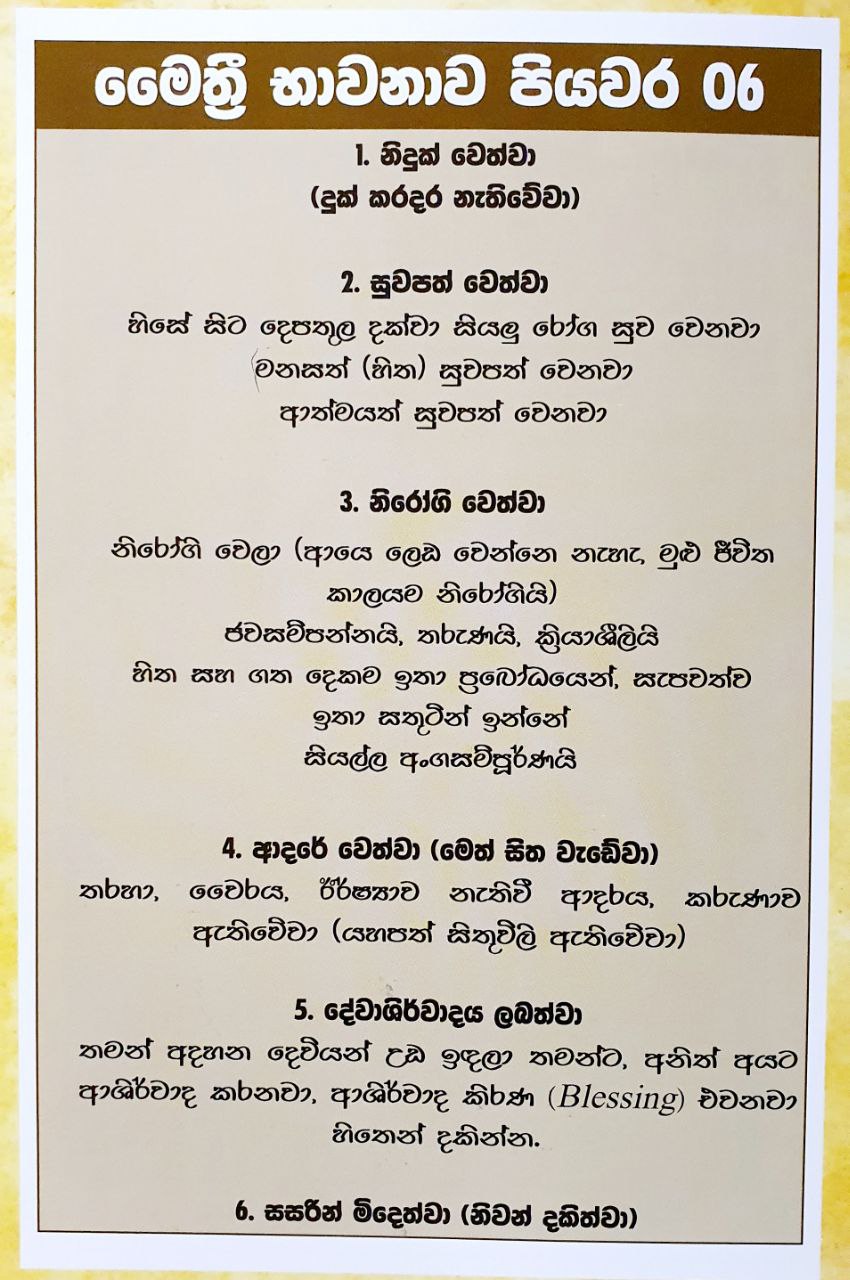 මෛත්‍රී භාවනාව පියවර 06
1. නිදුක් වෙත්වා
(දුක් කරදර නැතිවේවා)
2. සුවපත් වෙත්වා
හිසේ සිට දෙපතුල දක්වා සියලු රෝග සුව වෙනවා
මනසත් (හිත) සුවපත් වෙනවා
ආත්මයත් සුවපත් වෙනවා
3. නිරෝගි වෙත්වා
නිරෝගි වෙලා (ආයෙ ලෙඩ වෙන්නෙ නැහැ, මුළු ජීවිත
කාලයම නිරෝගියි)
ජවසම්පන්නයි, තරුණයි, ක්‍රියාශීලියි
හිත සහ ගත දෙකම ඉතා ප්‍රබෝධයෙන්, සැපවත්ව
ඉතා සතුටින් ඉන්නේ
සියල්ල අංගසම්පූර්ණයි
4. ආදරේ වෙත්වා (මෙත් සිත වැඩේවා)
තරහා, වෛරය, ඊර්ෂ්‍යාව නැතිවී ආදරය, කරුණාව
ඇතිවේවා (යහපත් සිතුවිලි ඇතිවේවා)
5. දේවාශිර්වාදය ලබත්වා
තමන් අදහන දෙවියන් උඩ ඉඳලා තමන්ට, අනිත් අයට
ආශිර්වාද කරනවා, ආශිර්වාද කිරණ (Blessing) එවනවා
හිතෙන් දකින්න.
6. සසරින් මිදෙත්වා (නිවන් දකිත්වා)